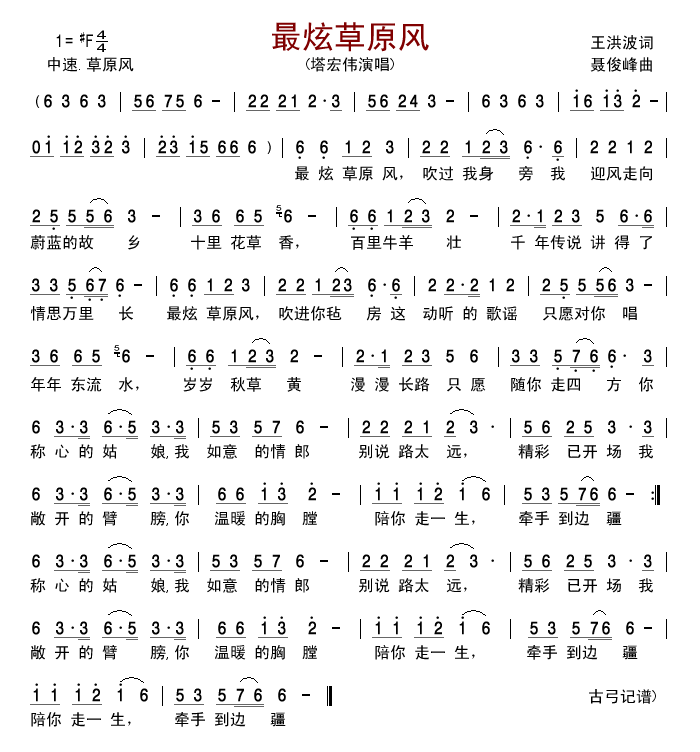 最炫草原风
1= #F 4/4
王洪波词
中速. 草原风
(塔宏伟演唱)
聂俊峰曲
( 6 3 6 3 | 56 75 6 - | 22 21 2·3 | 56 24 3 - | 6 3 6 3 | 16 13 2 -
01 12 32 3 | 23 15 66 6 ) | 6 6 1 2 3 | 2 2 1 2 3 6· 6 | 2 2 1 2
最 炫 草原 风, 吹过 我身 旁 我 迎风走向
2 5 5 5 6 3 - | 3 6 6 5 5 6 - | 6 6 1 2 3 2 - | 2·1 2 3 5 6·6
蔚蓝的故 乡 十里 花草 香, 百里牛羊 壮 千 年传说 讲 得了
3 3 5 6 7 6 - | 6 6 1 2 3 | 2 2 1 23 6·6 | 2 2·2 1 2 | 2 5 5 56 3 -
情思万里 长 最炫 草原风, 吹进你毡 房 这 动听 的 歌谣 只愿对你 唱
3 6 6 5 5 6 - | 6 6 1 2 3 2 - | 2·1 2 3 5 6 | 3 3 5 7 6 6· 3
年年 东流 水, 岁岁 秋草 黄 漫 漫 长路 只 愿 随你 走四 方 你
6 3·3 6·5 3·3 | 5 3 5 7 6 6 - | 2 2 2 1 2 3 · | 5 6 2 5 3 · 3
称 心 的 姑 娘,我 如意 的情 郎 别说 路太 远, 精彩 已开 场 我
6 3·3 6·5 3·3 | 6 6 1 3 2 - | 1 1 1 2 1 6 | 5 3 5 76 6 - :||
敞 开 的 臂 膀,你 温暖 的胸 膛 陪你 走一 生, 牵手 到边 疆
6 3·3 6·5 3·3 | 5 3 5 7 6 6 - | 2 2 2 1 2 3 · | 5 6 2 5 3 · 3
称 心 的 姑 娘,我 如意 的情 郎 别说 路太 远, 精彩 已开 场 我
6 3·3 6·5 3·3 | 6 6 1 3 2 - | 1 1 1 2 1 6 | 5 3 5 76 6 -
敞 开 的 臂 膀,你 温暖 的胸 膛 陪你 走一 生, 牵手 到边 疆
1 1 1 2 1 6 | 5 3 5 7 6 6 - ||
古弓记谱)
陪你 走一 生, 牵手 到边 疆